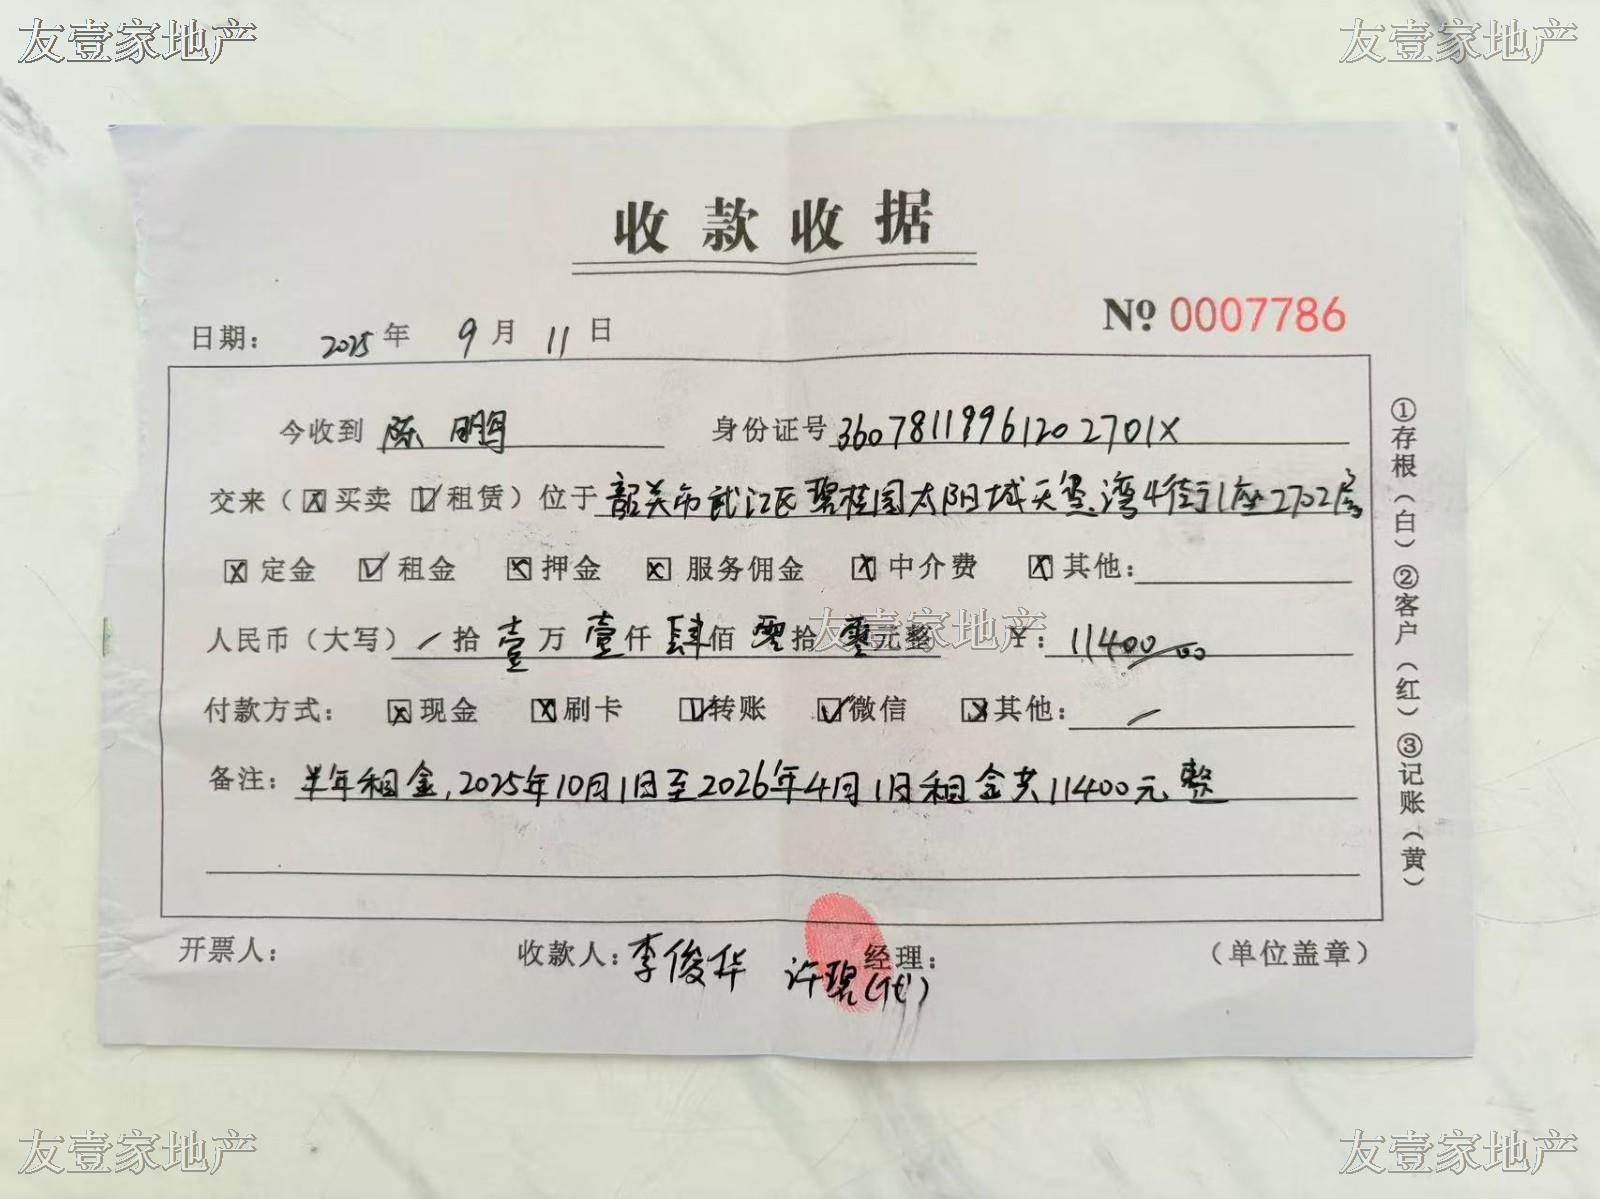 友壹家地产 友壹家地产
收款收据
№ 0007786
日期： 2025 年 9 月 11 日
今收到 陈鹏 身份证号 36078119961202701X
交来（☒买卖 ☑租赁）位于 韶关市武江区碧桂园太阳城天玺湾4街1座2702房
☒定金 ☑租金 ☒押金 ☒服务佣金 ☒中介费 ☒其他：
人民币（大写） / 拾 壹 万 壹 仟 肆 佰 零 拾 零 元整 ¥：11400.00
友壹家地产
付款方式： ☒现金 ☒刷卡 ☑转账 ☑微信 ☒其他： /
备注：半年租金，2025年10月1日至2026年4月1日租金共11400元整
开票人： 收款人：李俊华 许碧(代) 经理： （单位盖章）
①存根（白）②客户（红）③记账（黄）
友壹家地产 友壹家地产